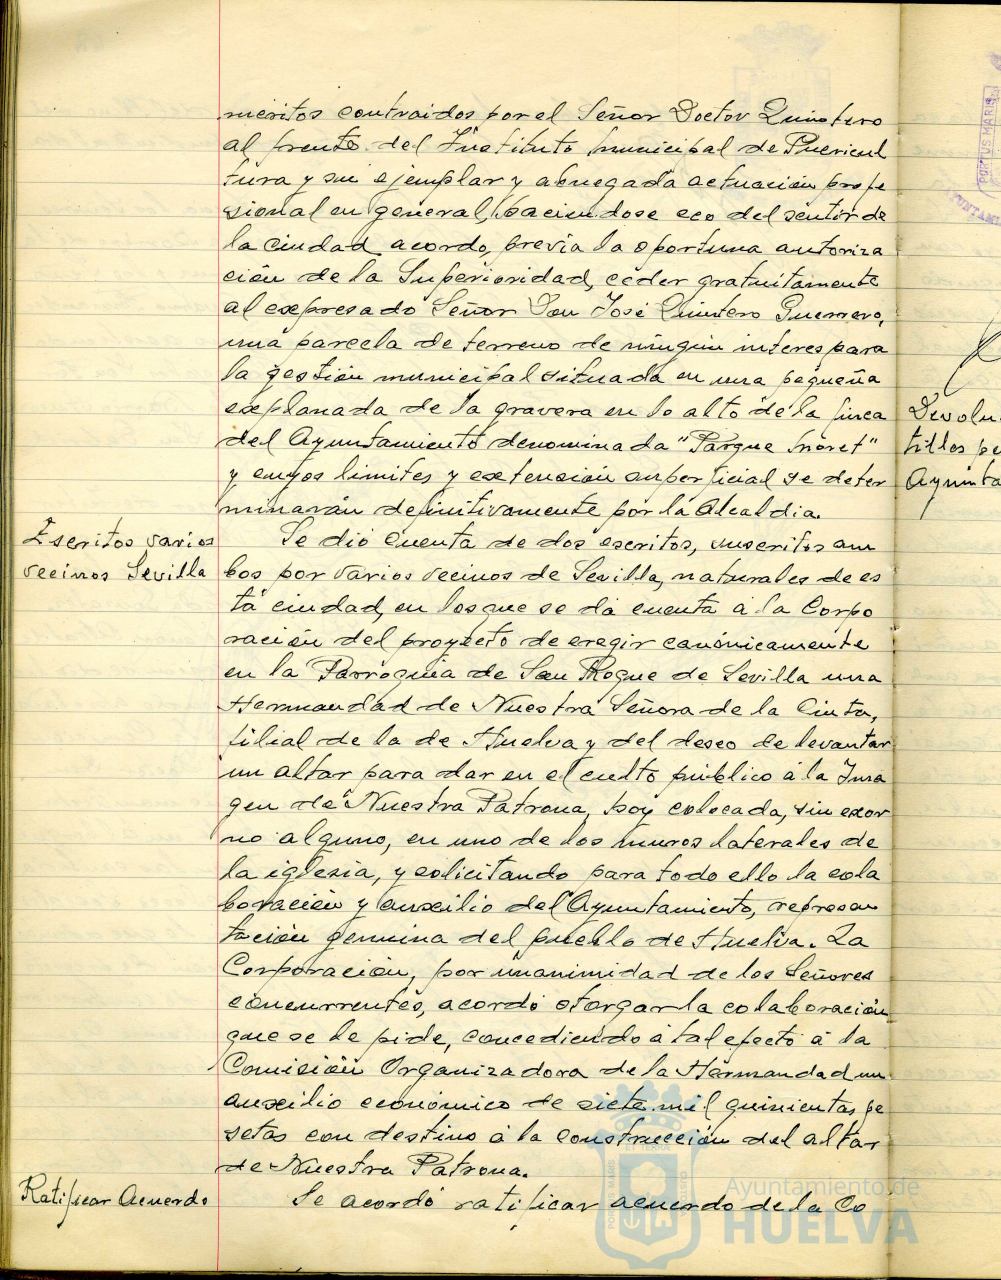 méritos contraidos por el Señor Doctor Quintero
al frente del Instituto Municipal de Puericul
tura y su ejemplar y abnegada actuación profe
sional en general, haciendose eco del sentir de
la ciudad acordo, previa la oportuna autoriza
ción de la Superioridad, ceder gratuitamente
al expresado Señor Don José Quintero Guerrero,
una parcela de terreno de ningún interes para
la gestión municipal situada en una pequeña
explanada de la gravera en lo alto de la finca
del Ayuntamiento denominada "Parque Moret"
y cuyos limites y extensión superficial se deter
minarán definitivamente por la Alcaldia.
Escritos varios
vecinos Sevilla
Se dió cuenta de dos escritos, suscritos am
bos por varios vecinos de Sevilla, naturales de es
ta ciudad, en los que se dá cuenta á la Corpo
ración del proyecto de eregir canónicamente
en la Parroquia de San Roque de Sevilla una
Hermandad de Nuestra Señora de la Cinta,
filial de la de Huelva y del deseo de levantar
un altar para dar en el culto público á la Ima
gen de Nuestra Patrona, hoy colocada, sin exor
no alguno, en uno de los muros laterales de
la iglesia, y solicitando para todo ello la cola
boración y auxilio del Ayuntamiento, represen
tación genuina del pueblo de Huelva. La
Corporación, por unanimidad de los Señores
concurrentes, acordó otorgar la colaboración
que se le pide, concediendo á tal efecto á la
Comisión Organizadora de la Hermandad un
auxilio económico de siete mil quinientas pe
setas con destino á la construcción del altar
de Nuestra Patrona.
Ratificar Acuerdo
Se acordó ratificar acuerdo de la Co
Devolu
tillos pe
Ayunta
PORTUS MARIS
AYUNTAMI
Ayuntamiento de
HUELVA